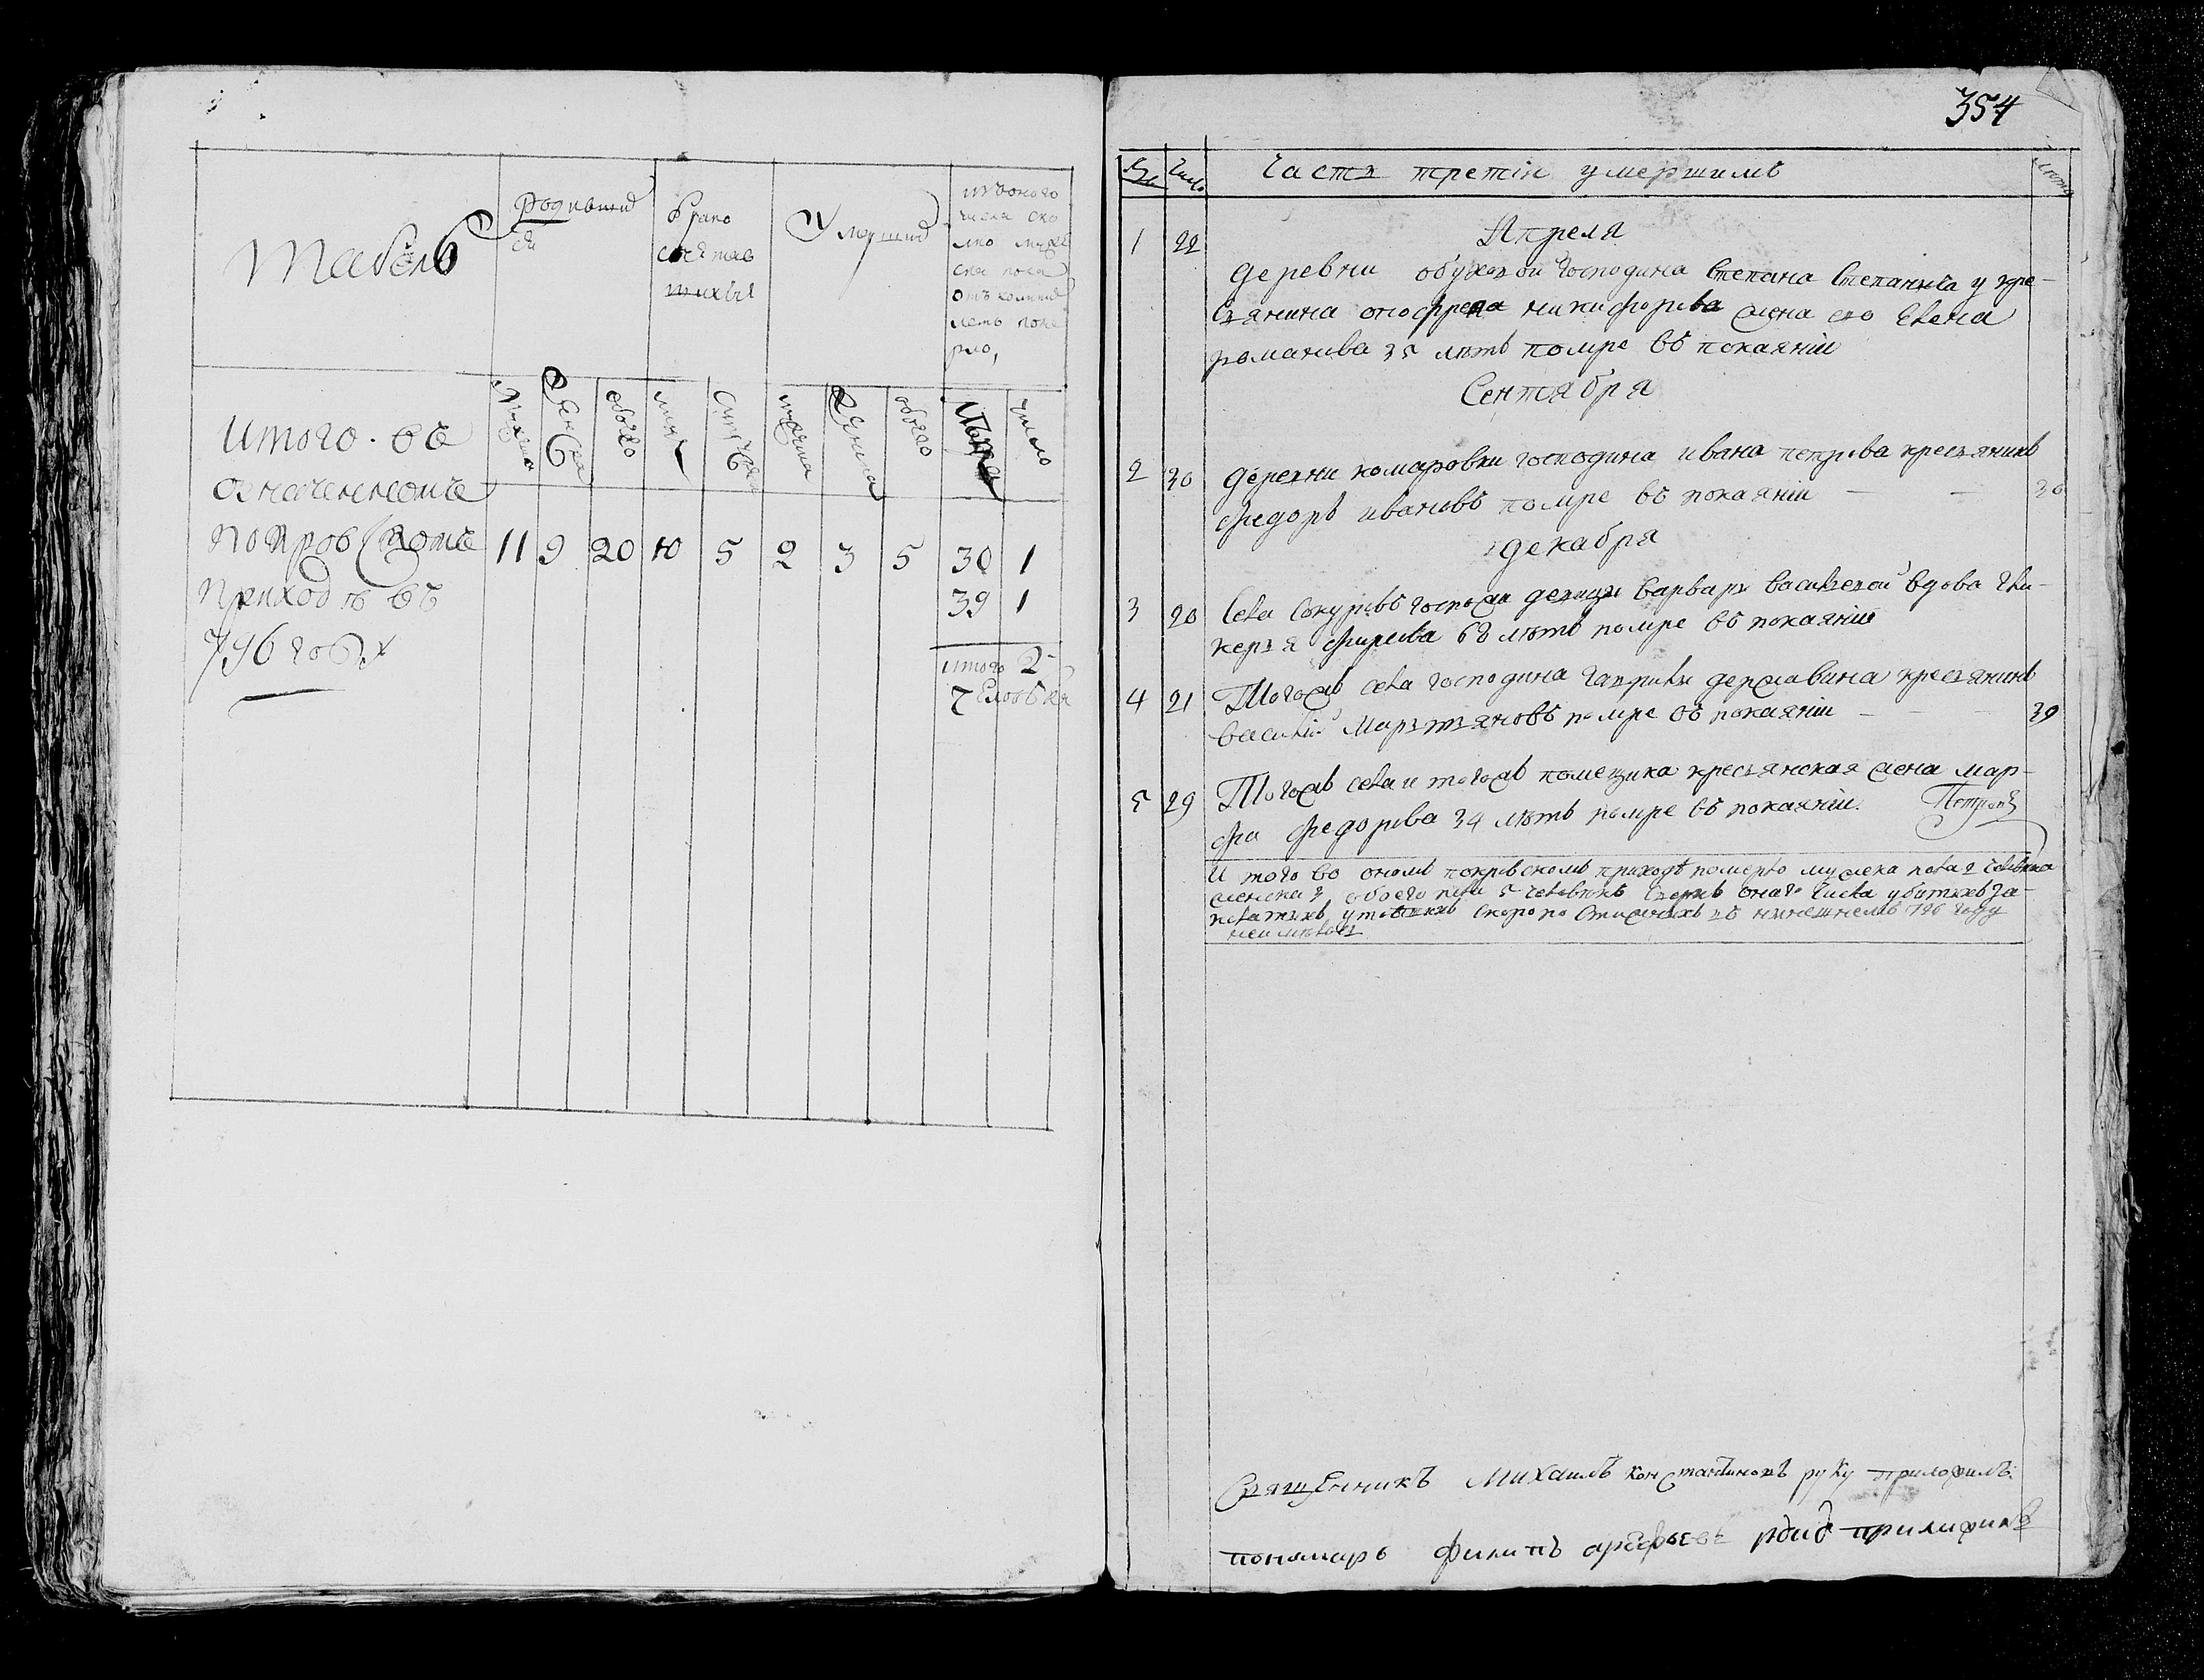 Табель
родивши
ся
брако
сочетав
шихся
Умерши
изъ оного
числа ско
лко муже
ска пола
отъ коликих
летъ поме
рло,
мужеска
женска
обоего
обоего
женска
обоего
число
Итого въ
означенномъ
Покровскомъ
приходѣ въ
796 году
11 9 20 10 5 2 3 5 30 1
39 1
итого 2
человека
354
№
число
Часть третія умершимъ
лѣта
Апреля
1 22
деревни обуховой господина Степана Степаныча у кре-
стьянина онофрея никифорова жена ево Елена
романова 35 лѣтъ помре въ покаяніи
Сентября
2 30 деревни комаровки господина ивана петрова крестьянинъ
федоръ ивановъ помре въ покаяніи — — 30
декабря
3 20 Села госпожи девицы варвары васильевой вдова гли-
керья 68 лѣтъ помре въ покаяніи
4 21 Тогожъ села господина гаврилы державина крестьянинъ
василій мартьяновъ помре въ покаяніи — — 39
5 29 Тогожъ села и тогожъ помещика крестьянская жена мар-
фа федорова 34 лѣтъ помре въ покаяніи.
Итого во ономъ покровскомъ приходѣ померло мужеска пола 2 человека
женска 3 обоего пола 5 человѣкъ онаго числа убитыхъ за-
скоро по въ нынешнемъ 796 году
неимелось
Священникъ Михаилъ константиновъ руку приложилъ.
пономарь филипъ арефьевъ руку приложилъ